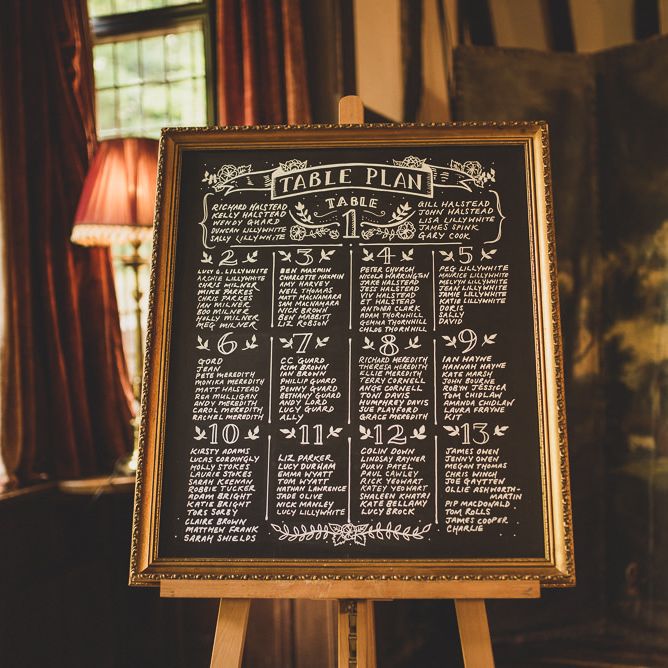 TABLE PLAN
TABLE
1
RICHARD HALSTEAD
KELLY HALSTEAD
WENDY GUARD
DUNCAN LILLYWHITE
SALLY LILLYWHITE
GILL HALSTEAD
JOHN HALSTEAD
LISA LILLYWHITE
JAMES SPINK
GARY COOK
2
LUCY O. LILLYWHITE
ARCHIE LILLYWHITE
CHRIS MILNER
MIKE PARKES
CHRIS PARKES
IAN MILNER
BOO MILNER
HOLLY MILNER
MEG MILNER
3
BEN MAKMIN
CHARLOTTE MAKMIN
AMY HARVEY
NEIL THOMAS
MATT MACNAMARA
SAM MACNAMARA
NICK BROWN
BEN MABBITT
LIZ ROBSON
4
PETER CHURCH
NICOLA WARRINGTON
JAKE HALSTEAD
JESS HALSTEAD
VIV HALSTEAD
ET HALSTEAD
ANTONIA CLARK
ADAM THORNHILL
GEMMA THORNHILL
CHLOE THORNHILL
5
PEG LILLYWHITE
MAURICE LILLYWHITE
MELVYN LILLYWHITE
JEAN LILLYWHITE
JAMIE LILLYWHITE
KATIE LILLYWHITE
DORIS
SALLY
DAVID
6
GORD
JEAN
PETE MEREDITH
MONIKA MEREDITH
MATT HALSTEAD
REA MULLIGAN
ANDY MEREDITH
CAROL MEREDITH
RACHEL MEREDITH
7
CC GUARD
KIM BROWN
IAN BROWN
PHILLIP GUARD
PENNY GUARD
BETHANY GUARD
ANDY LORD
LUCY GUARD
ALLY
8
RICHARD MEREDITH
THERESA MEREDITH
ELLIE MEREDITH
TERRY CORNELL
ANGE CORNELL
TONI DAVIS
HUMPHREY DAVIS
SUE PLAYFORD
GRACE MEREDITH
9
IAN WAYNE
HANNAH WAYNE
KATE MARSH
JOHN BOURNE
ROBYN JESSICA
TOM CHIDLAW
AMANDA CHIDLAW
LAURA FRAYNE
KIT
10
KIRSTY ADAMS
LUCAS CORDINGLY
HOLLY STOKES
LAURIE STOKES
SARAH KEENAN
ROBBIE TUCKER
ADAM BRIGHT
KATIE BRIGHT
TORS SORBY
CLAIRE BROWN
MATTHEW FRANK
SARAH SHIELDS
11
LIZ PARKER
LUCY DURHAM
EMMA WYATT
TOM WYATT
NATHAN LAWRENCE
JADE OLIVE
NICK MANLEY
LUCY LILLYWHITE
12
COLIN DOWN
LINDSAY RAYNER
PURVI PATEL
PAUL CAWLEY
RICK YEOWART
KATEY YEOWART
SHALEEN KHATRI
KATE BELLAMY
LUCY BROCK
13
JAMES OWEN
JENNY OWEN
MEGAN THOMAS
CHRIS WINCH
JOE GAYTTEN
OLLIE ASHWORTH-
MARTIN
PIP MACDONALD
TOM ROLLS
JAMES COOPER
CHARLIE